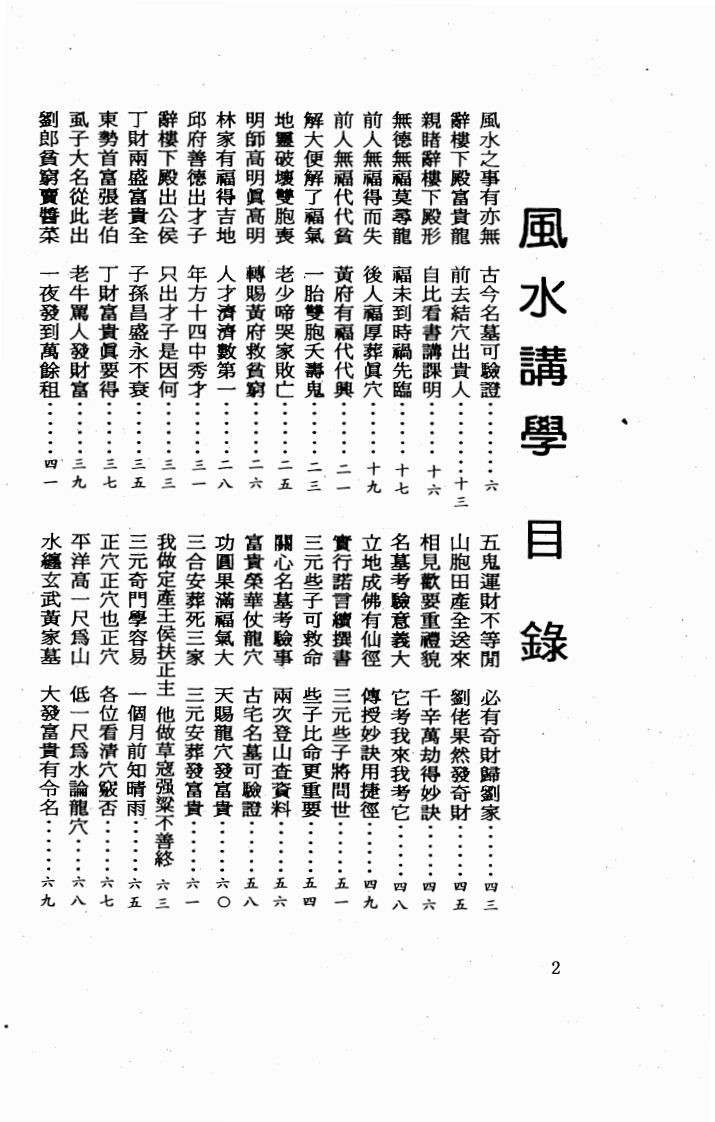 風水講學目錄
風水之事有亦無　古今名墓可驗證⋯⋯⋯六
辭樓下殿富貴龍　前去結穴出貴人⋯⋯⋯十三
親睹辭樓下殿形　自比看書講課明⋯⋯⋯十六
無德無福莫尋龍　福未到時禍先臨⋯⋯⋯十七
前人無福得而失　後人福厚葬眞穴⋯⋯⋯十九
前人無福代代貧　黃府有福代代興⋯⋯⋯二一
解大便解了福氣　一胎雙胞夭壽鬼⋯⋯⋯二三
地靈破壞雙胞喪　老少啼哭家敗亡⋯⋯⋯二五
明師高明眞高明　轉賜黃府救貧窮⋯⋯⋯二六
林家有福得吉地　人才濟濟數第一⋯⋯⋯二八
邱府善德出才子　年方十四中秀才⋯⋯⋯三一
辭樓下殿出公侯　只出才子是因何⋯⋯⋯三三
丁財兩盛富貴全　子孫昌盛永不衰⋯⋯⋯三五
東勢首富張老伯　丁財富貴眞要得⋯⋯⋯三七
虱子大名從此出　老牛罵人發財富⋯⋯⋯三九
劉郎貧窮賣醬菜　一夜發到萬餘租⋯⋯⋯四一
五鬼運財不等閒　必有奇財歸劉家⋯⋯⋯四三
山胞田產全送來　劉佬果然發奇財⋯⋯⋯四五
相見歡要重禮貌　千辛萬劫得妙訣⋯⋯⋯四六
名墓考驗意義大　它考我來我考它⋯⋯⋯四八
立地成佛有仙徑　傳授妙訣用捷徑⋯⋯⋯四九
實行諾言續撰書　三元些子將問世⋯⋯⋯五一
三元些子可救命　些子比命更重要⋯⋯⋯五四
關心名墓考驗事　兩次登山查資料⋯⋯⋯五六
富貴榮華仗龍穴　古宅名墓可驗證⋯⋯⋯五八
功圓果滿福氣大　天賜龍穴發富貴⋯⋯⋯六〇
三合安葬死三家　三元安葬發富貴⋯⋯⋯六一
我做定產王侯扶正主　他做草寇强粱不善終　六三
三元奇門學容易　一個月前知晴雨⋯⋯⋯六五
正穴正穴也正穴　各位看清穴竅否⋯⋯⋯六七
平洋高一尺爲山　低一尺爲水論龍穴⋯⋯⋯六八
水纏玄武黃家墓　大發富貴有令名⋯⋯⋯六九
2